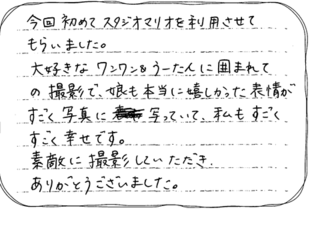 今回初めてスタジオマリオを利用させて
もらいました。
大好きなワンワン&うーたんに囲まれて
の撮影で、娘も本当に嬉しかった表情が
すごく写真に写っていて、私もすごく
すごく幸せです。
素敵に撮影していただき、
ありがとうございました。